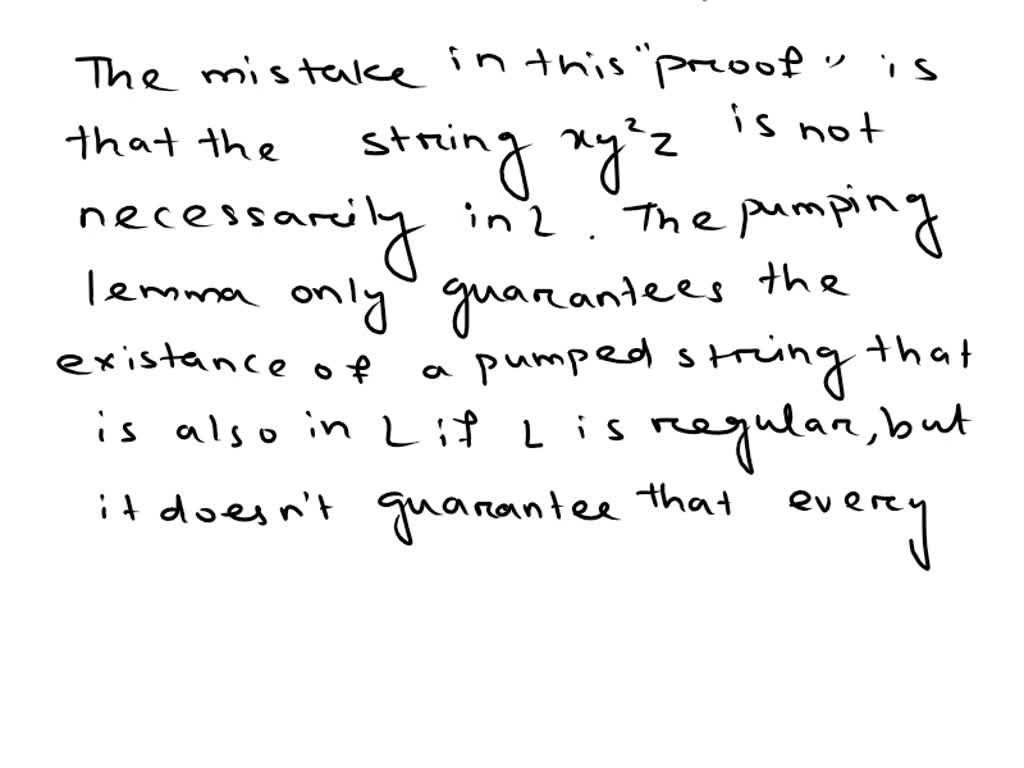 The mistake in this "proof" is
that the string xy²z is not
necessarily in L. The pumping
lemma only guarantees the
existance of a pumped string that
is also in L if L is regular, but
it doesn't guarantee that every